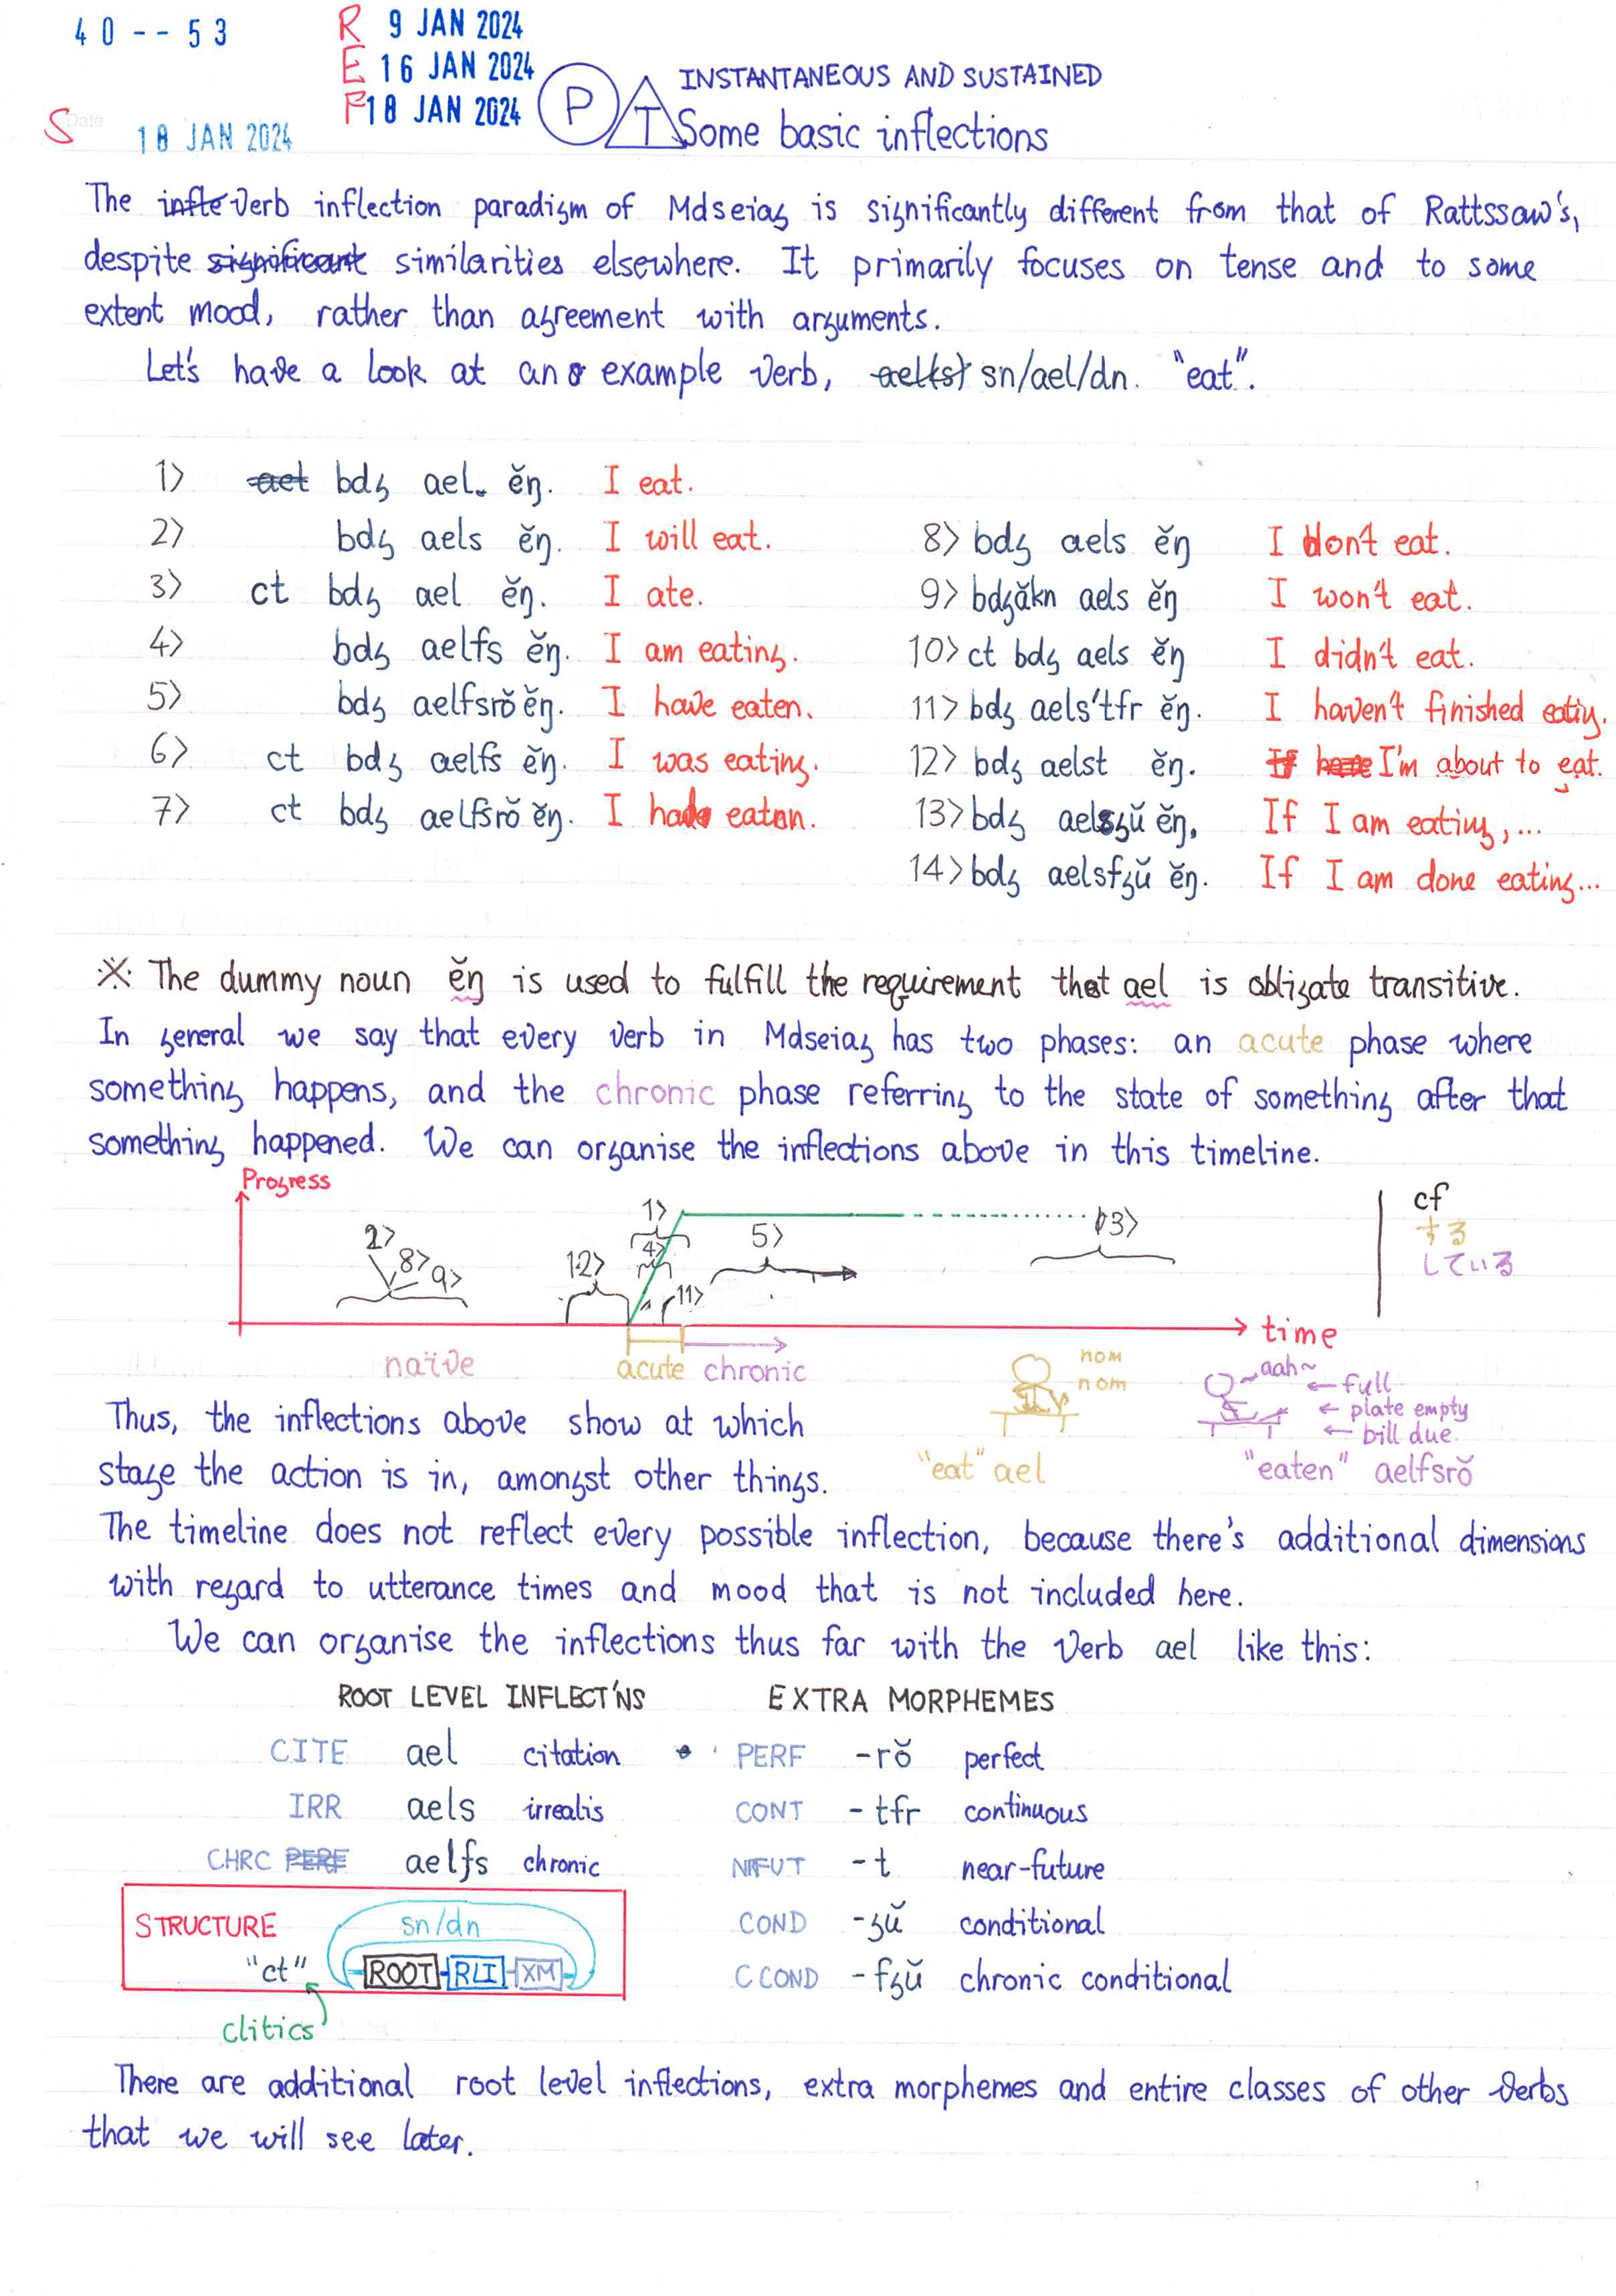 40--53
R 9 JAN 2024
E 16 JAN 2024
F 18 JAN 2024
S Date 18 JAN 2024
P T INSTANTANEOUS AND SUSTAINED
Some basic inflections
The infle verb inflection paradigm of Mdseiaȝ is significantly different from that of Rattssaw's,
despite significant similarities elsewhere. It primarily focuses on tense and to some
extent mood, rather than agreement with arguments.
Let's have a look at an example verb, sn/ael/dn. "eat".
1> ael bdȝ ael. ĕŋ. I eat.
2> bdȝ aels ĕŋ. I will eat.
3> ct bdȝ ael ĕŋ. I ate.
4> bdȝ aelfs ĕŋ. I am eating.
5> bdȝ aelfsrŏ ĕŋ. I have eaten.
6> ct bdȝ aelfs ĕŋ. I was eating.
7> ct bdȝ aelfsrŏ ĕŋ. I had eaten.
8> bdȝ aels ĕŋ I don't eat.
9> bdȝăkn aels ĕŋ I won't eat.
10> ct bdȝ aels ĕŋ I didn't eat.
11> bdȝ aels'tfr ĕŋ. I haven't finished eating.
12> bdȝ aelst ĕŋ. I'm about to eat.
13> bdȝ aelsȝŭ ĕŋ, If I am eating,...
14> bdȝ aelsfȝŭ ĕŋ. If I am done eating...
※ The dummy noun ĕŋ is used to fulfill the requirement that ael is obligate transitive.
In general we say that every verb in Mdseiaȝ has two phases: an acute phase where
something happens, and the chronic phase referring to the state of something after that
something happened. We can organise the inflections above in this timeline.
Progress
2> 8> 9> 12> 1> 4> 11> 5> 13>
time
naïve acute chronic
cf
する
している
nom
nom
"eat" ael
aah~
← full
← plate empty
← bill due
"eaten" aelfsrŏ
Thus, the inflections above show at which
stage the action is in, amongst other things.
The timeline does not reflect every possible inflection, because there's additional dimensions
with regard to utterance times and mood that is not included here.
We can organise the inflections thus far with the verb ael like this:
ROOT LEVEL INFLECT'NS
CITE ael citation
IRR aels irrealis
CHRC PERF aelfs chronic
EXTRA MORPHEMES
PERF -rŏ perfect
CONT -tfr continuous
NFUT -t near-future
COND -ȝŭ conditional
CCOND -fȝŭ chronic conditional
STRUCTURE
sn/dn
"ct" ROOT RLI XM
clitics
There are additional root level inflections, extra morphemes and entire classes of other verbs
that we will see later.